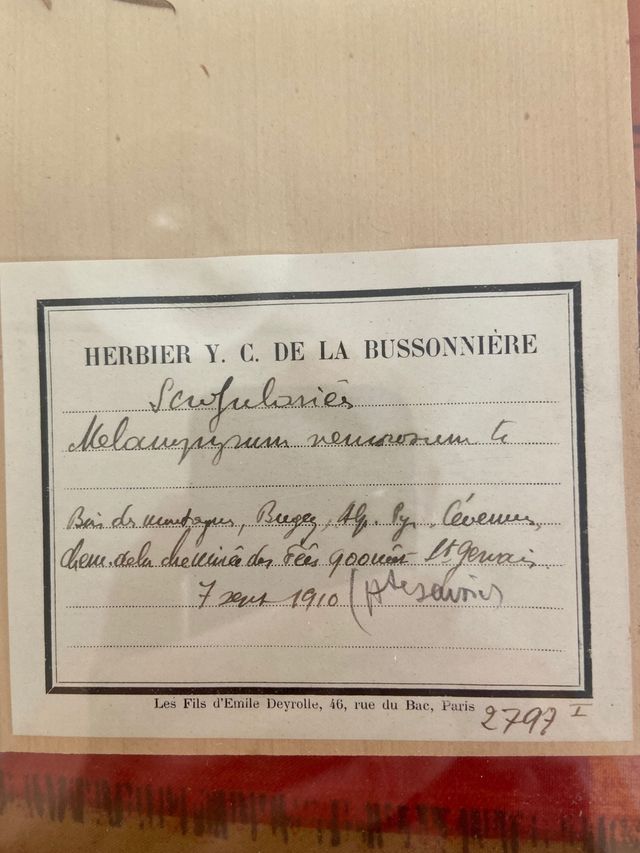 HERBIER Y. C. DE LA BUSSONNIÈRE
Scrofulariés
Melampyrum nemorosum L
Bois des montagnes, Bugey, Alp. Pyr. Cévennes,
chem. de la cheminée des Fées St Gervais
7 sept 1910 (Hte savoie)
Les Fils d'Emile Deyrolle, 46, rue du Bac, Paris
2797 I